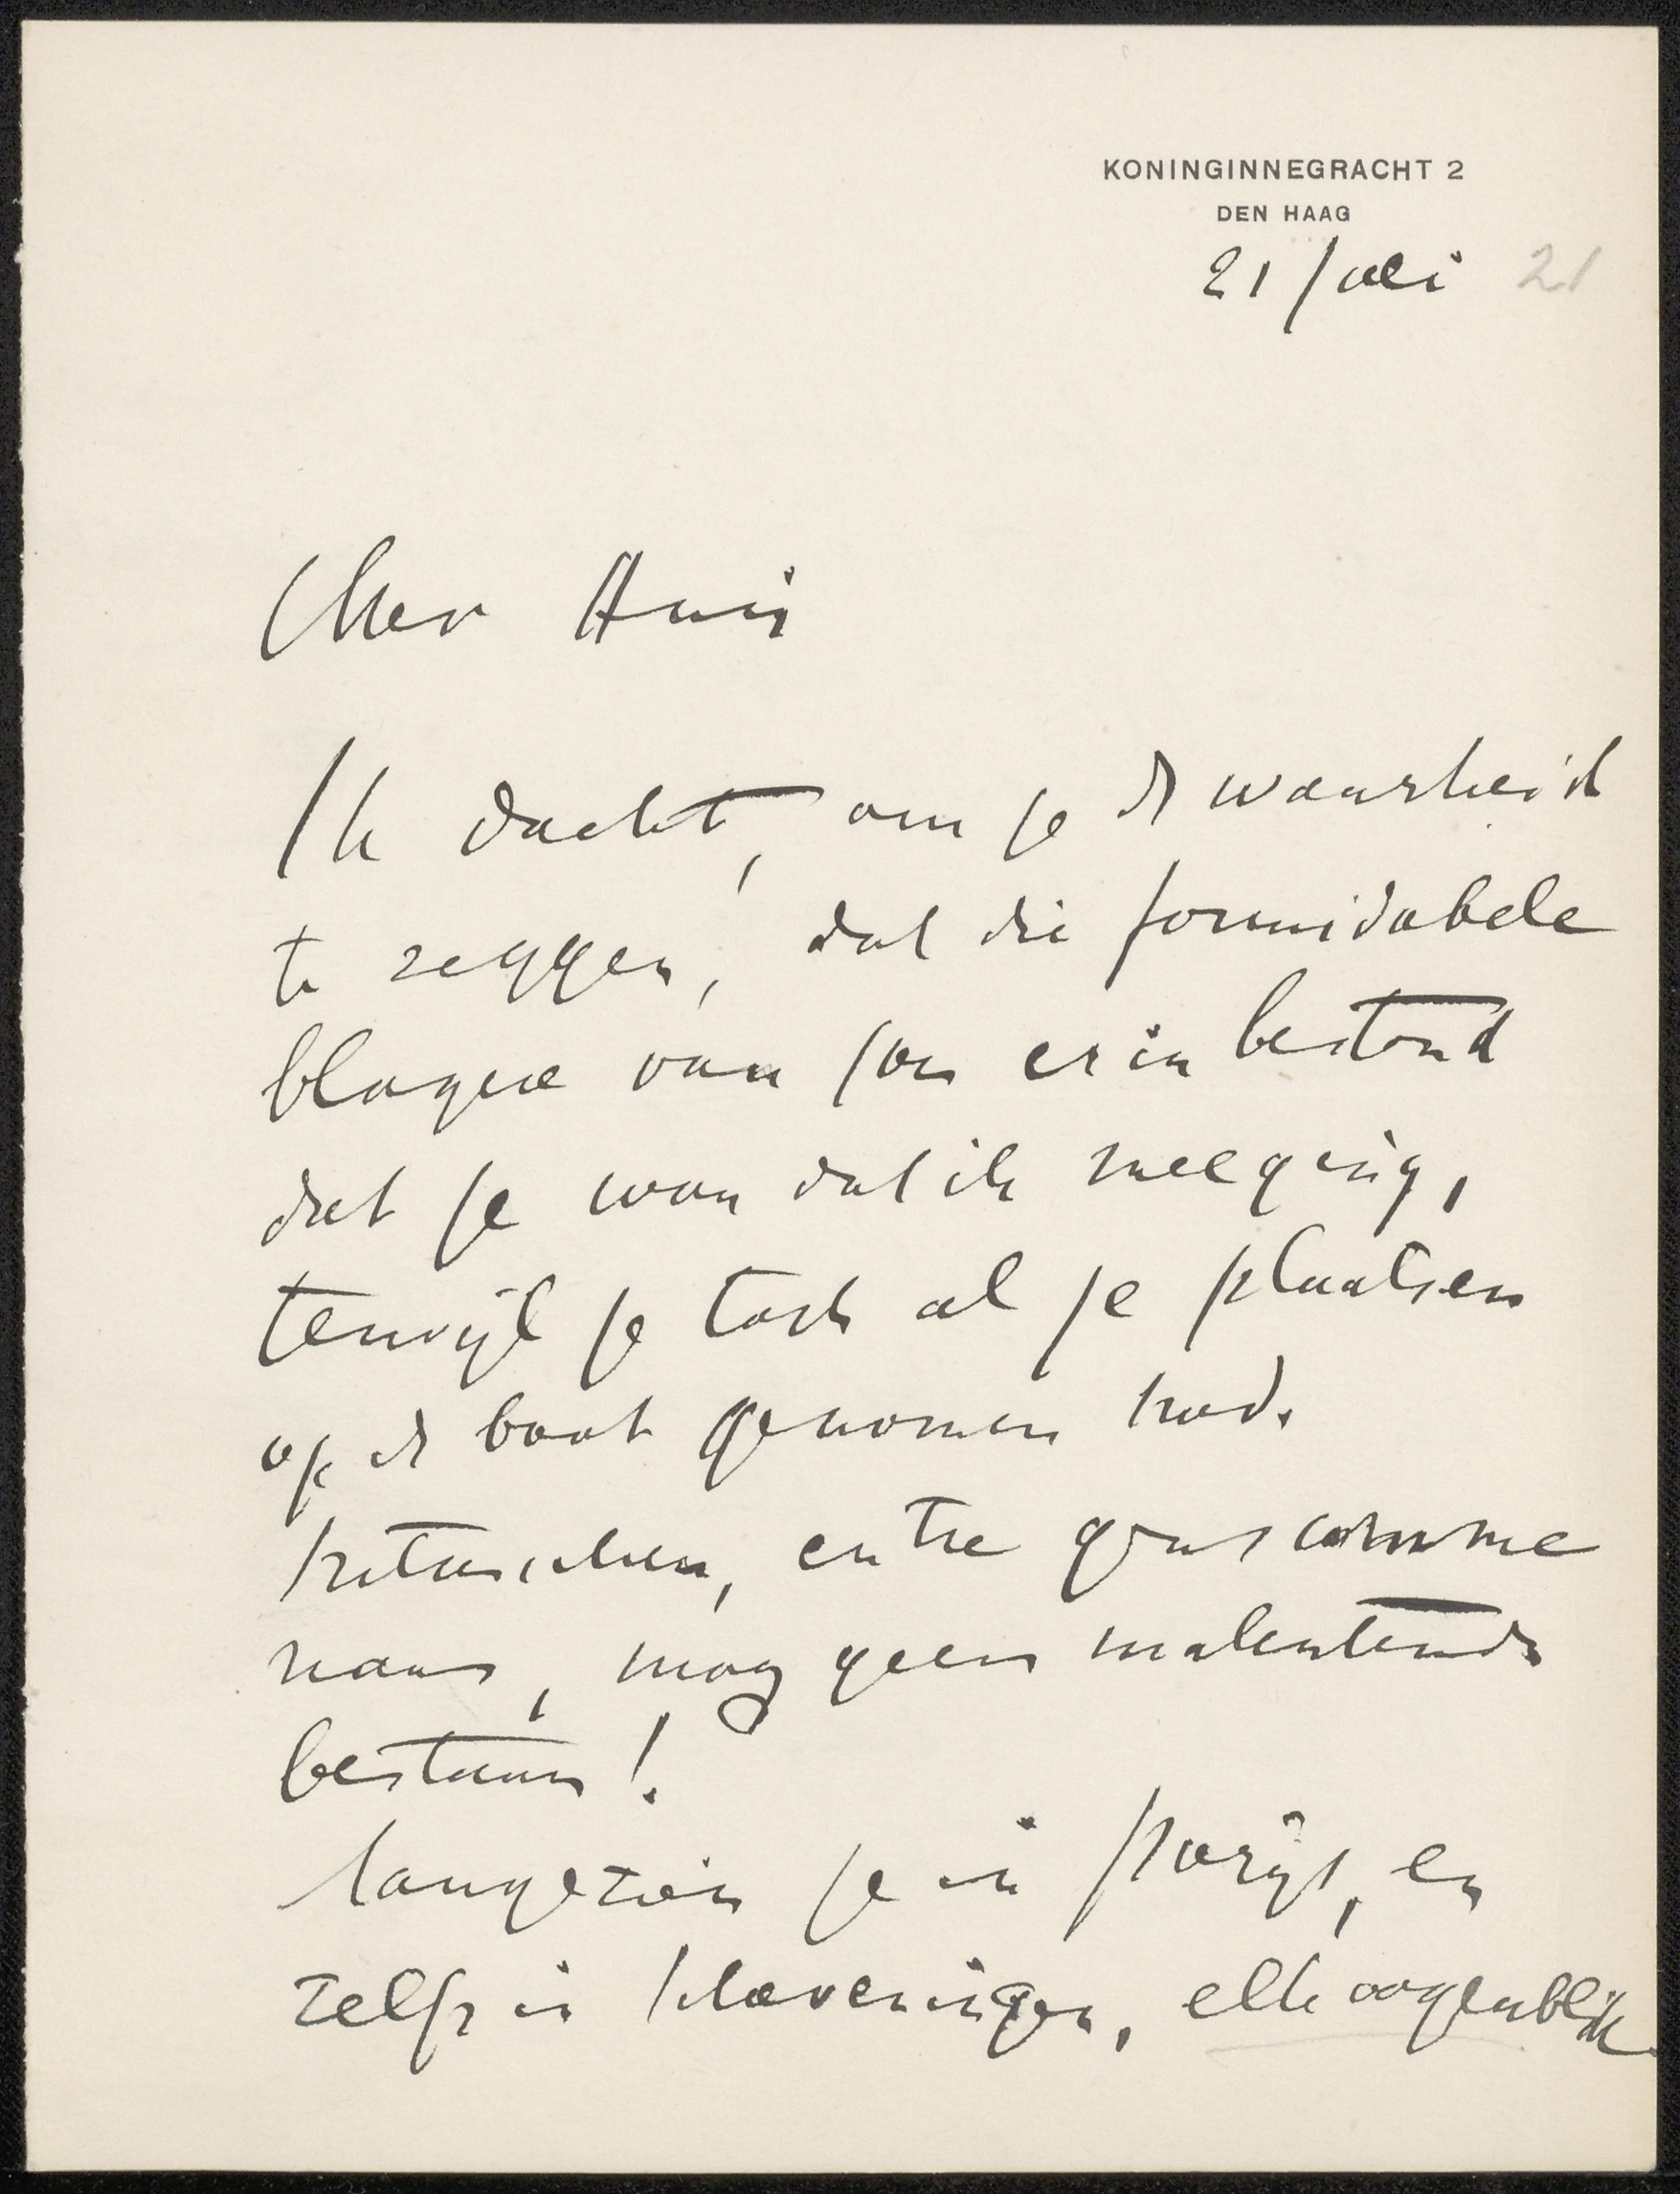 KONINGINNEGRACHT 2
DEN HAAG
21 Juli 21
Cher Huis
Ik dacht, om je de waarheid
te zeggen, dat die formidabele
blague van jou erin bestond
dat je wou dat ik meeging,
terwijl je toch al je plaatsen
op de boot genomen had.
Intusschen, entre gens comme
nous, mag geen malentendu
bestaan!
Aangezien je in Parijs, en
zelfs in Scheveningen, elk oogenblik